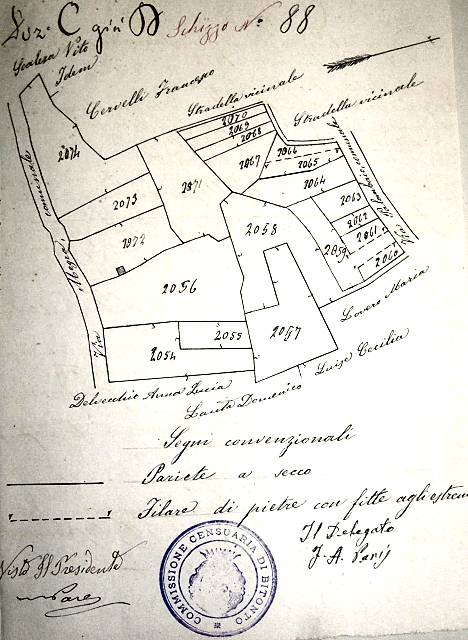 Sez.e C già D Schizzo N.º 88
Scalera Vito
Idem
Cervelli Francesco
Stradella vicinale
Stradella vicinale
2070
2069
2068
2067
2066
2065
2064
2074
2073
2071
2063
2062
2061
2060
2072
2058
2059
2056
2055
2054
2057
Via Megra comunale
Via
Lovero Maria
Luise Cecilia
Delvecchio Anna Lucia
Domenico
Segni convenzionali
Pariete a secco
Filare di pietre con fitte agli estremi
Il Delegato
Visto Il Presidente
COMMISSIONE CENSUARIA DI BITONTO